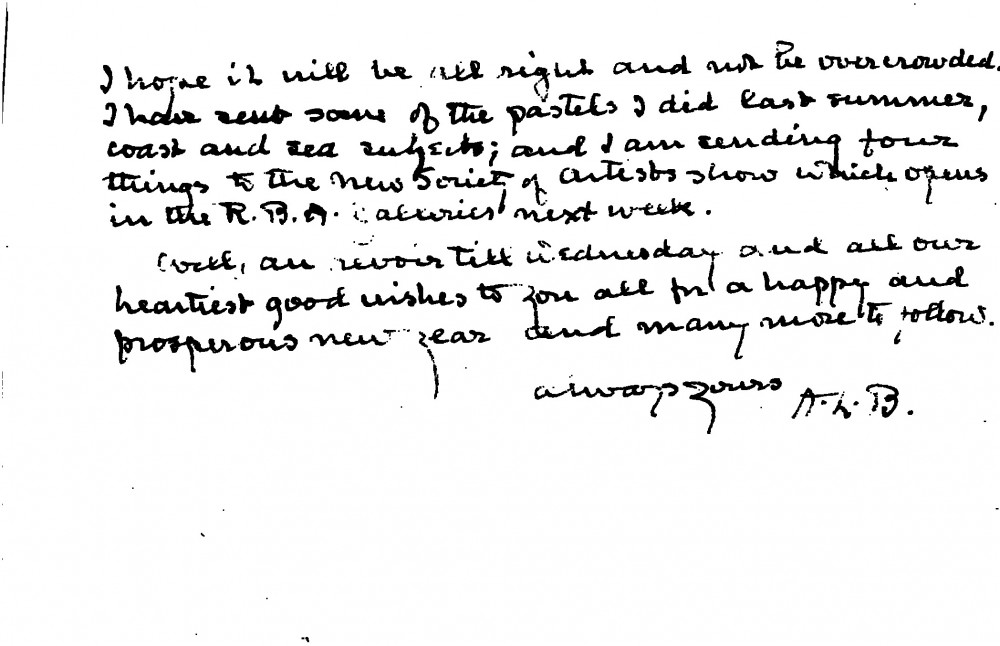 I hope it will be all right and not be overcrowded.
I have sent some of the pastels I did last summer,
coast and sea subjects; and I am sending four
things to the New Society of Artists show which opens
in the R.B.A. Galleries next week.
Well, au revoir till Wednesday and all our
heartiest good wishes to you all for a happy and
prosperous new year and many more to follow.
always yours A.L.B.